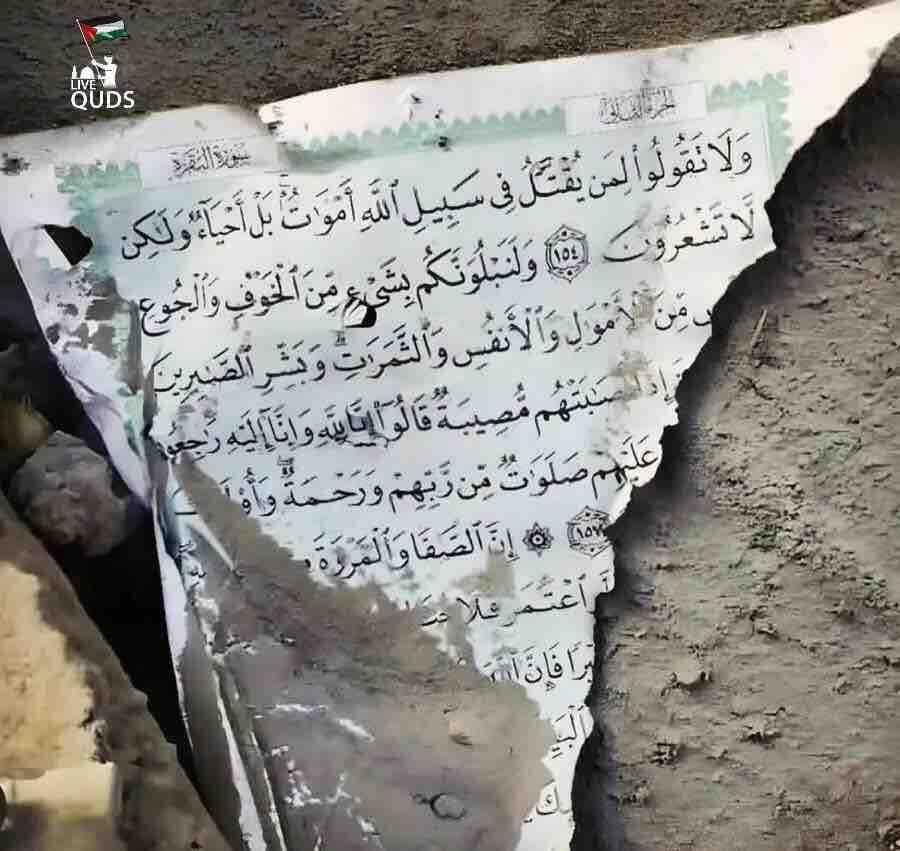 LIVE
QUDS
سورة البقرة
الجزء الثاني
وَلَا تَقُولُوا۟ لِمَن يُقْتَلُ فِى سَبِيلِ ٱللَّهِ أَمْوَٰتٌۢ بَلْ أَحْيَآءٌ وَلَٰكِن
لَّا تَشْعُرُونَ ١٥٤ وَلَنَبْلُوَنَّكُم بِشَىْءٍ مِّنَ ٱلْخَوْفِ وَٱلْجُوعِ
مِّنَ ٱلْأَمْوَٰلِ وَٱلْأَنفُسِ وَٱلثَّمَرَٰتِ وَبَشِّرِ ٱلصَّٰبِرِينَ
مُّصِيبَةٌ قَالُوٓا۟ إِنَّا لِلَّهِ وَإِنَّآ إِلَيْهِ
عَلَيْهِمْ صَلَوَٰتٌ مِّن رَّبِّهِمْ وَرَحْمَةٌ
١٥٧ ۞ إِنَّ ٱلصَّفَا وَٱلْمَرْوَةَ
ٱعْتَمَرَ فَلَا
فَإِنَّ